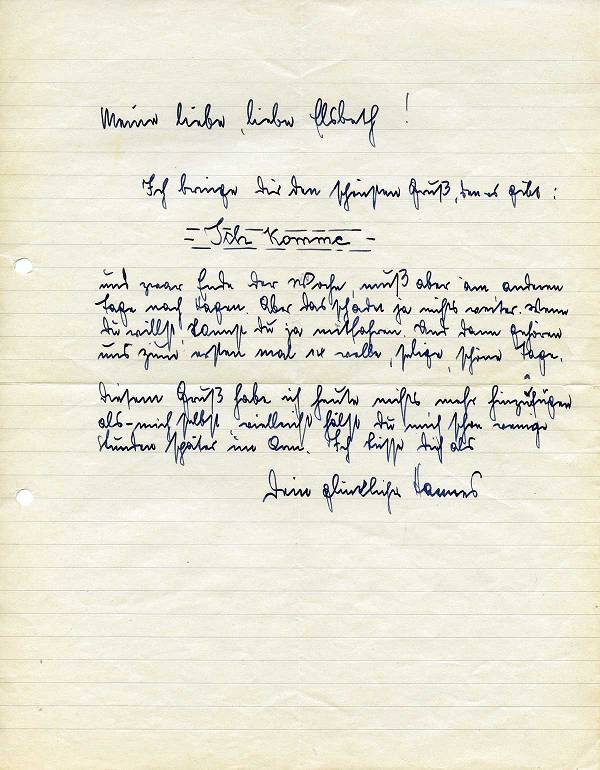 Meine liebe, liebe Elsbeth!
Ich bringe dir den schönsten Gruß, den es gibt:
= Ich komme =
und zwar Ende der Woche, muß aber am anderen
Tage nach Hagen. Aber das schadet ja nichts weiter. Wenn
du willst, kannst du ja mitfahren. Und dann gehören
uns zum ersten mal volle, selige, schöne Tage.
Diesem Gruß habe ich heute nichts mehr hinzuzufügen
als - mich selbst, vielleicht hälst du mich schon wenige
Stunden später im Arm. Ich küsse Dich als
Dein glücklicher Hannes